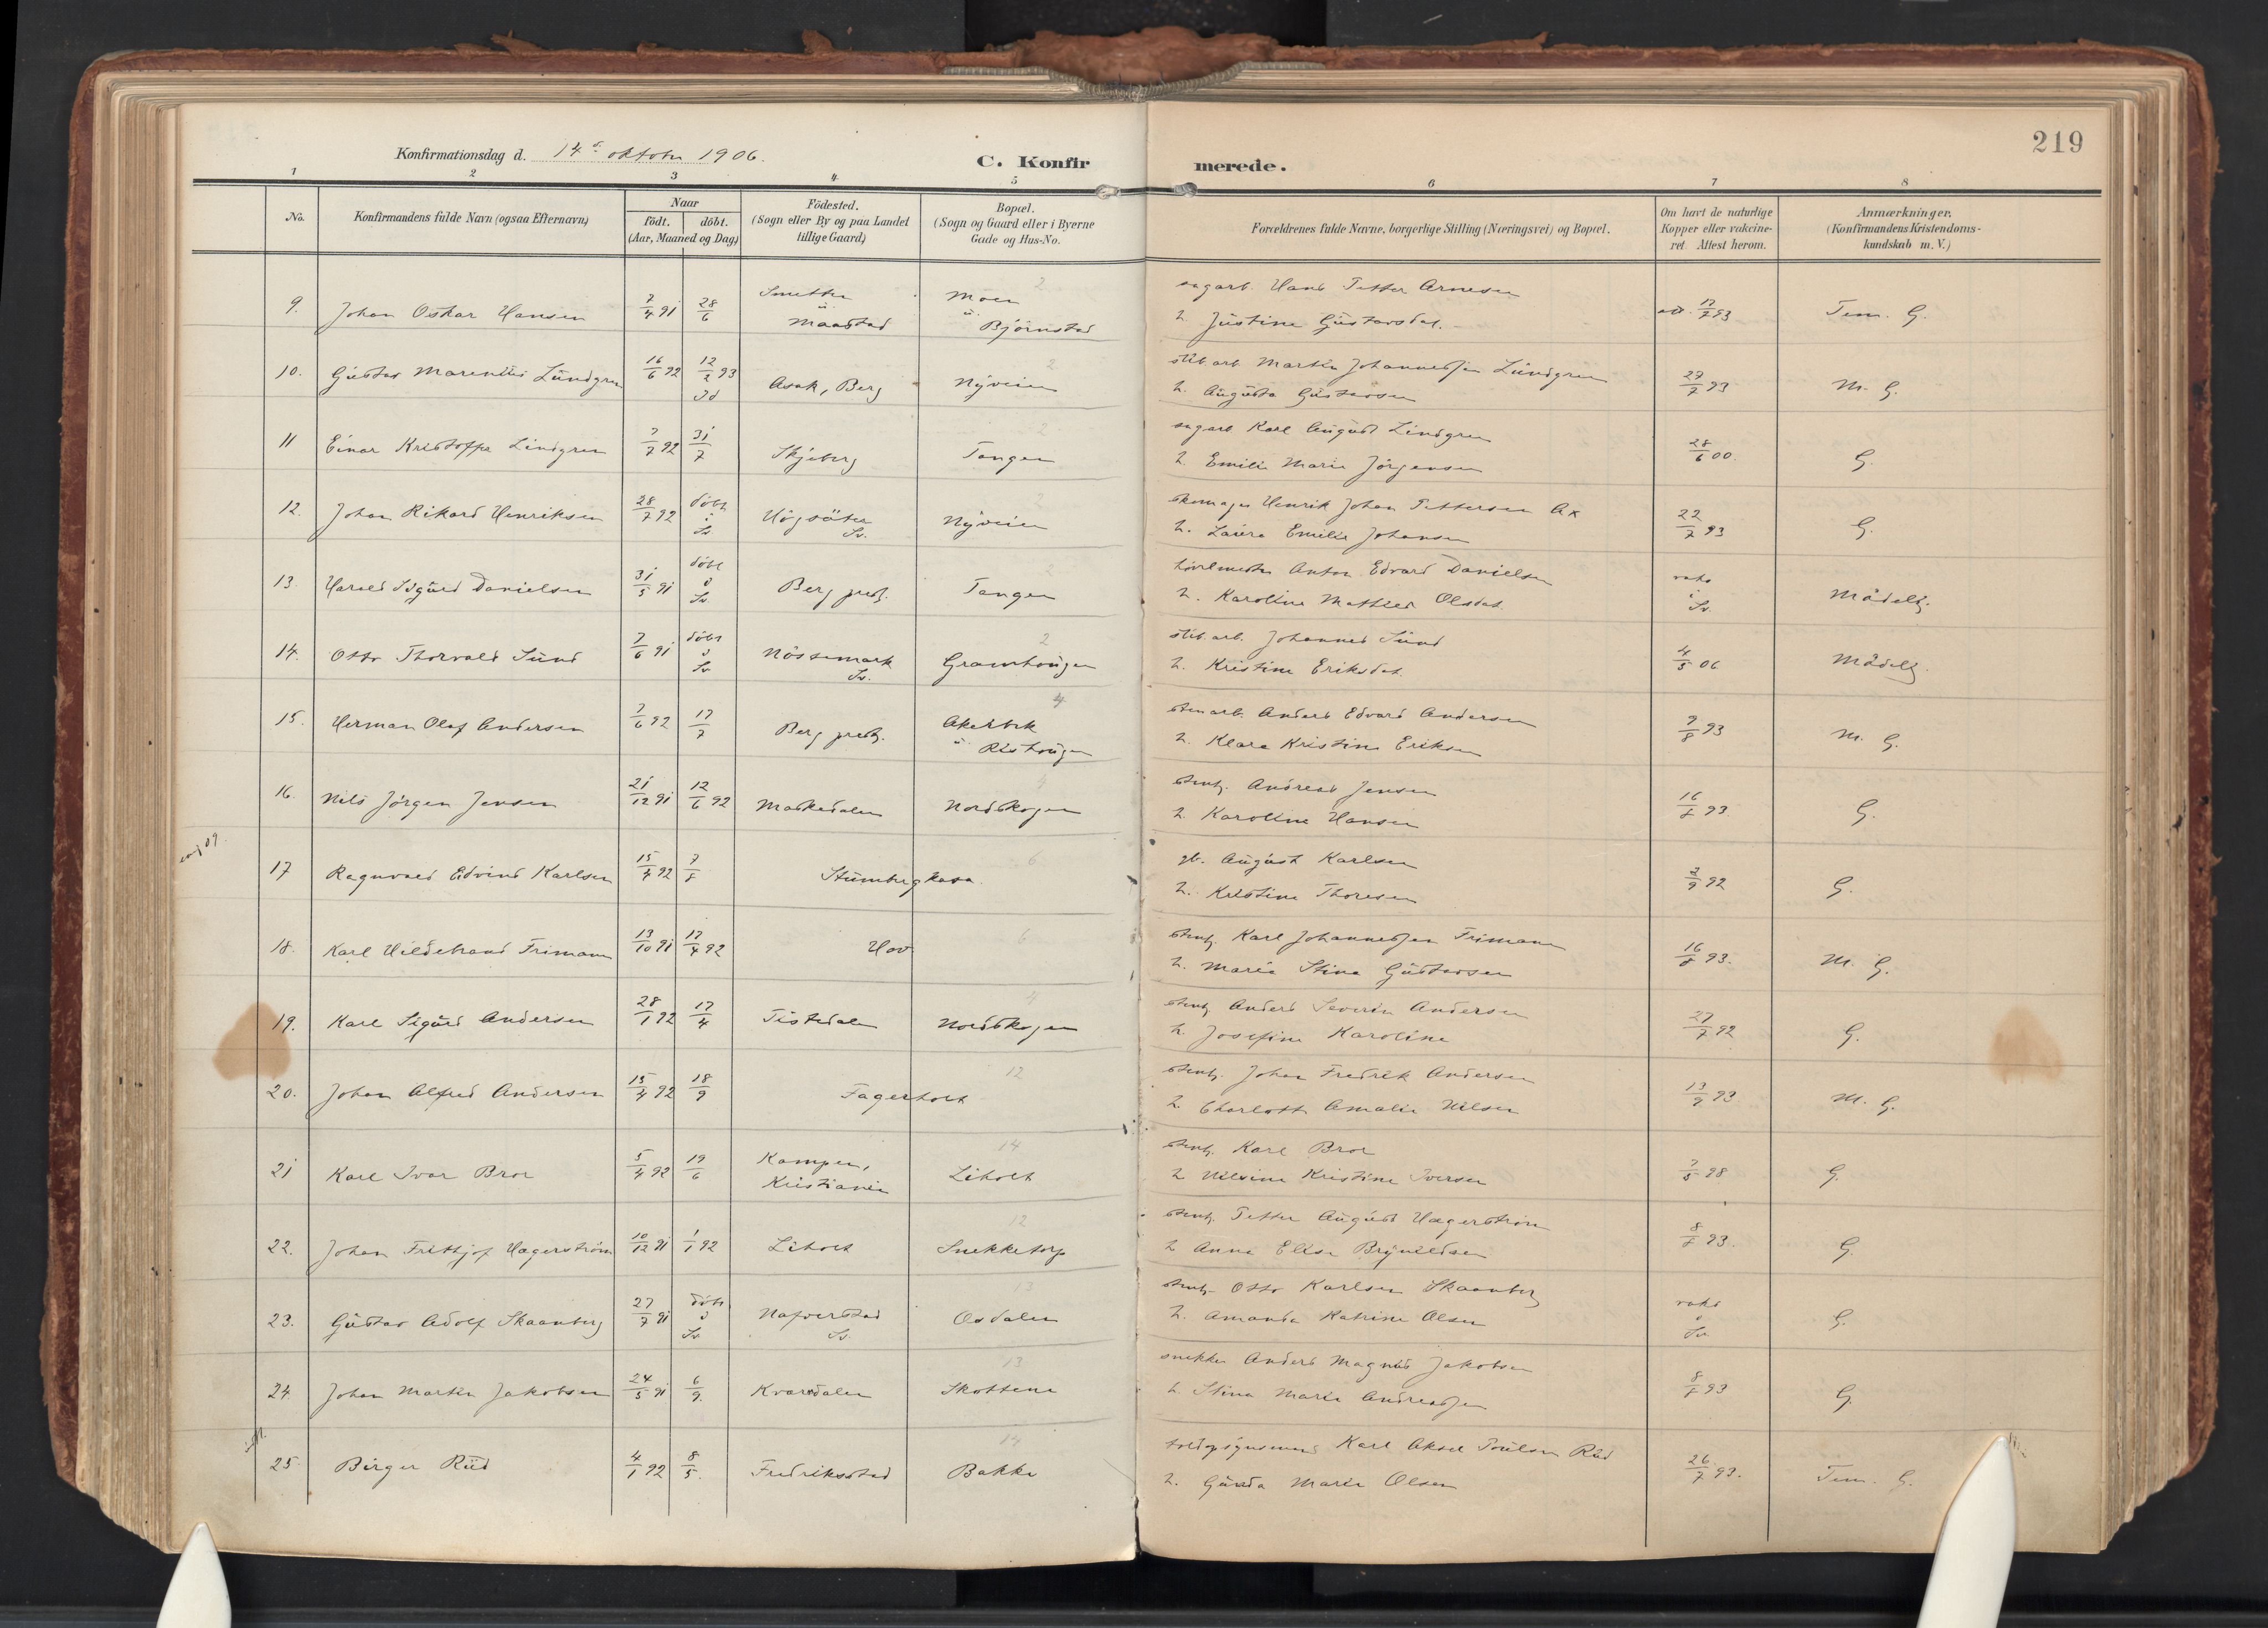 219
Konfirmationsdag d. 14de oktober 1906.
C. Konfirmerede.
1 2 3 4 5 6 7 8
No. Konfirmandens fulde Navn (ogsaa Efternavn) Naar født. døbt. (Aar, Maaned og Dag) Fødested. (Sogn eller By og paa Landet tillige Gaard) Bopæl. (Sogn og Gaard eller i Byerne Gade og Hus-No. Forældrenes fulde Navne, borgerlige Stilling (Næringsvei) og Bopæl. Om havt de naturlige Kopper eller vakcineret. Attest herom. Anmærkninger. (Konfirmandens Kristendomskundskab m. V.)
9. Johan Oskar Hansen 7/4 91 28/6 Smetten u. Maastad Moen u. Björnstad 2 sagarb. Hans Petter Arnesen
h. Justine Gustavsdat. att. 17/7 93 Tem. G.
10. Gustav Marentius Lundgren 16/6 92 12/2 93 Id Asak, Berg Nyveien 2 stib.arb. Martin Johannessen Lundgren
h. Augusta Gustavsen 27/7 93 M. G.
11 Einar Kristoffer Lindgren 7/7 92 31/7 Skjeberg Tangen 2 sagarb Karl August Lindgren
h. Emilie Marie Jörgensen 28/6 00. G.
12. Johan Rikard Henriksen 28/7 92 döbt i Sv. Högsäter Sv. Nyveien 2 skomager Henrik Johan Pettersen Ax
h. Laura Emilie Johansen 22/7 93 G.
13. Harald Sigurd Danielsen 31/5 91 döbt i Sv. Berg prestg. Tangen 2 hövlmester Anton Edvard Danielsen
h. Karoline Mathea Olsdat. vaks i Sv. Mådelg.
14. Otto Thorvald Sund 7/6 91 döbt i Sv Nössemark Sv. Gramhougen 2 stib.arb. Johannes Sund
h. Kristine Eriksdat. 4/5 06 Mådelg.
15. Herman Olaf Andersen 7/6 92 17/7 Berg prestg. Akerbæk u. Rishougen 4 stenarb. Anders Edvard Andersen
h. Klara Kristine Eriksen 9/8 93 M. G.
16. Nils Jörgen Jensen 21/12 91 12/6 92 Maskedalen Nordskogen 4 stenh. Andreas Jensen
h. Karoline Hansen 16/8 93 G.
17 Ragnvald Edvind Karlsen 15/4 92 7/8 Stumbergkasa 6 gb. August Karlsen
h. Kristine Thoresen 2/9 92 G.
18. Karl Hildebrand Frimann 13/10 91 17/4 92 Hov 6 stenh. Karl Johannessen Frimann
h. Maria Stina Gustavsen 16/8 93. M. G.
19. Karl Sigurd Andersen 28/1 92 17/4 Tistedalen Nordskogen 4 stenh. Anders Severin Andersen
h. Josefine Karoline 27/7 92 G.
20. Johan Alfred Andersen 15/4 92 18/9 Fagerholt 12 stenh. Johan Fredrik Andersen
h. Charlotte Amalie Nilsen 13/9 93 M. G.
21 Karl Ivar Bror 5/4 92 19/6 Kampen, Kristiania Liholt 14 stenh. Karl Bror
h Nilsine Kristine Iversen 7/5 98 G.
22. Johan Frithjof Hagerström 10/12 91 1/1 92 Liholt Snekketorp 12 stenh. Petter August Hagerström
h Anna Elise Brynildsen 8/8 93. G.
23. Gustav Adolf Skaanberg 27/7 91 döbt i Sv. Nafverstad Sv. Osdalen 13 stenh. Otto Karlsen Skaanberg
h. Amanda Katrine Olsen vaks i Sv G.
24. Johan Martin Jakobsen 24/5 91 6/9. Kvarsdalen Skottene 13 snekker Anders Magnus Jakobsen
h Stina Marie Andreassen 8/8 93 G.
25. Birger Riud 4/1 92 8/5. Fredriksstad Bakke 14 toldopsynsmand Karl Aksel Poulsen Rud
h. Gunda Marie Olsen 26/7 93. Tem. G.